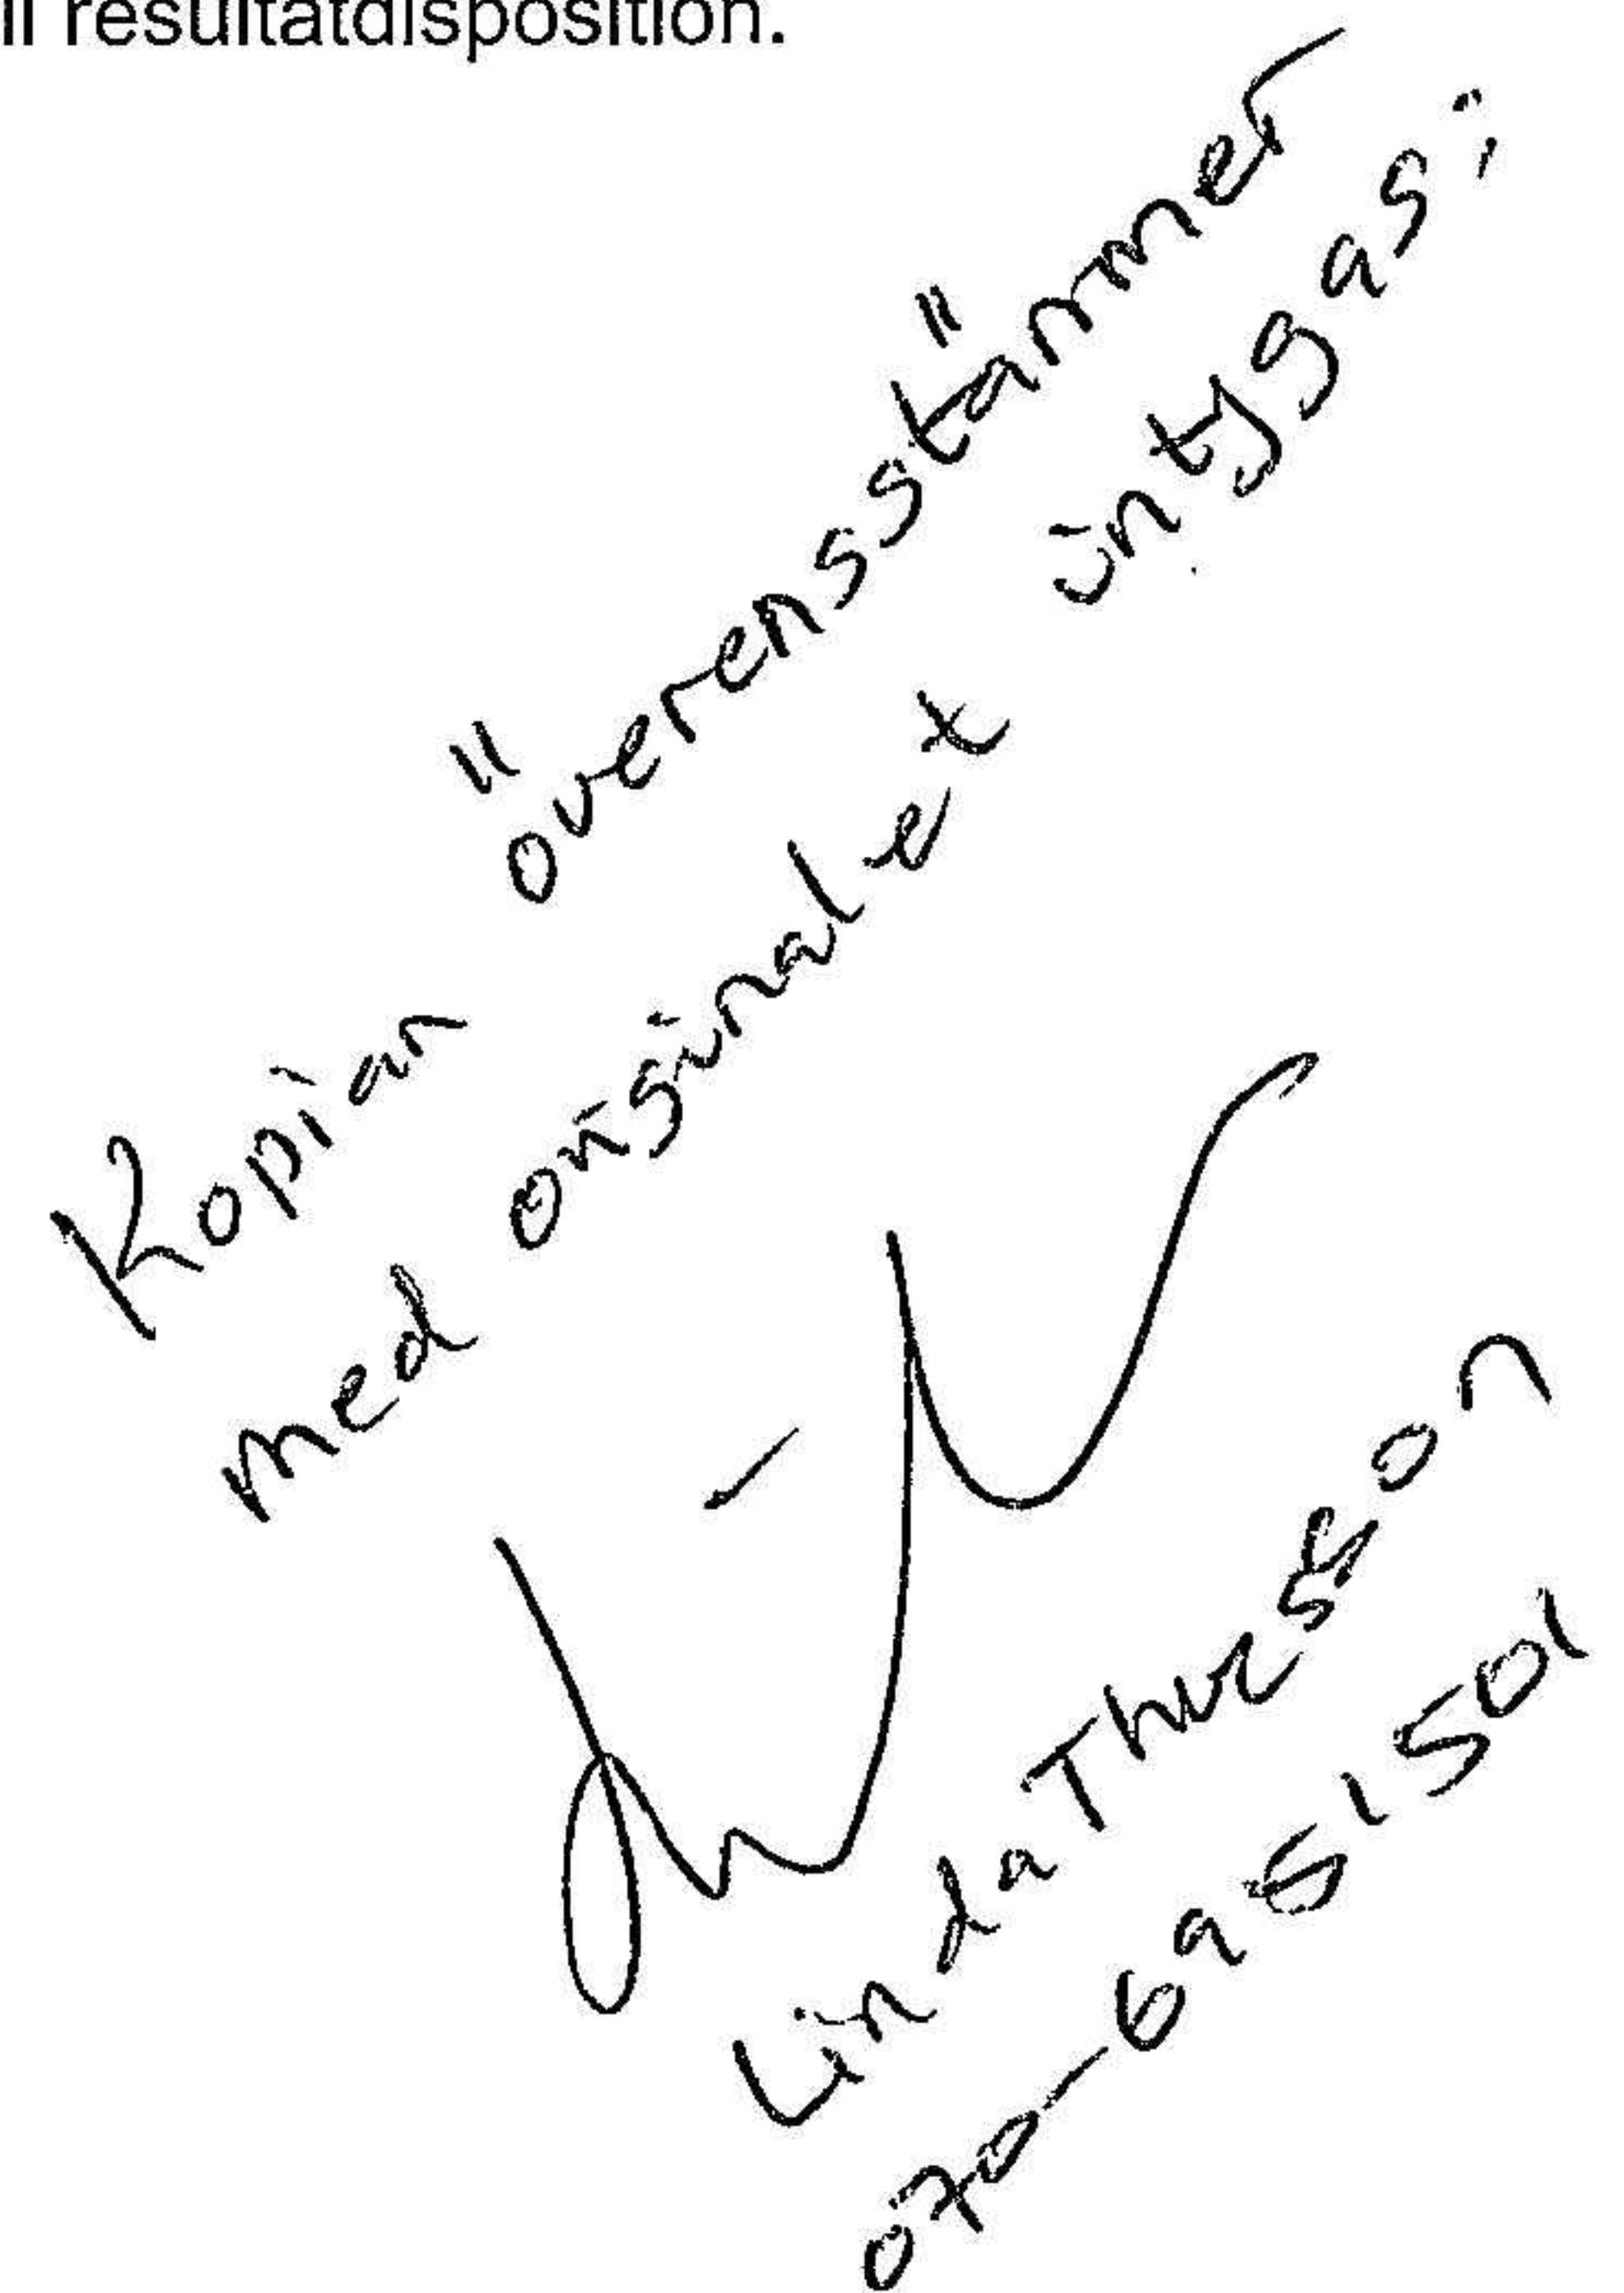 ll resultatdisposition.
Kopian överensstämmer
med originalet intygas:
Linda Thuresson
070-6951501